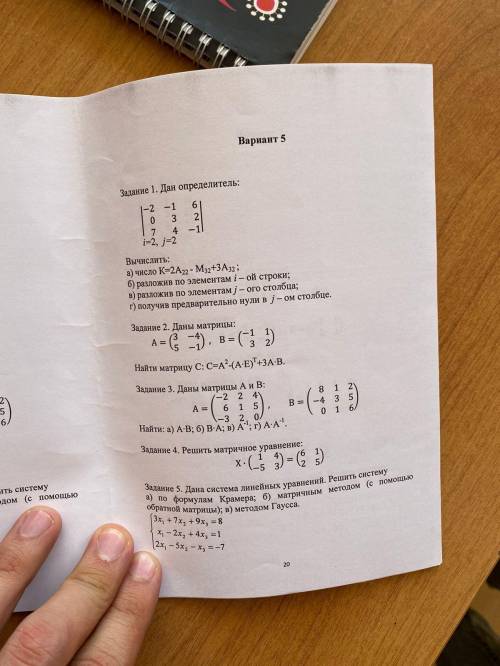 Вариант 5
Задание 1. Дан определитель:
|-2 -1 6|
|0 3 2|
|7 4 -1|
i=2, j=2
Вычислить:
а) число K=2A₂₂ - M₃₂+3A₃₂ ;
б) разложив по элементам i – ой строки;
в) разложив по элементам j – ого столбца;
г) получив предварительно нули в j – ом столбце.
Задание 2. Даны матрицы:
A = (3 -4
5 -1) , B = (-1 1
3 2)
Найти матрицу С: C=A²-(A·E)ᵀ+3A·B.
Задание 3. Даны матрицы А и В:
A = (-2 2 4
6 1 5
-3 2 0) , B = (8 1 2
-4 3 5
0 1 6)
Найти: а) A·B; б) B·A; в) A⁻¹; г) A·A⁻¹.
Задание 4. Решить матричное уравнение:
X · (1 4
-5 3) = (6 1
2 5)
Задание 5. Дана система линейных уравнений. Решить систему
а) по формулам Крамера; б) матричным методом (с помощью
обратной матрицы); в) методом Гаусса.
{3x₁ + 7x₂ + 9x₃ = 8
x₁ - 2x₂ + 4x₃ = 1
2x₁ - 5x₂ - x₃ = -7
20
2
5
6)
ить систему
одом (с помощью